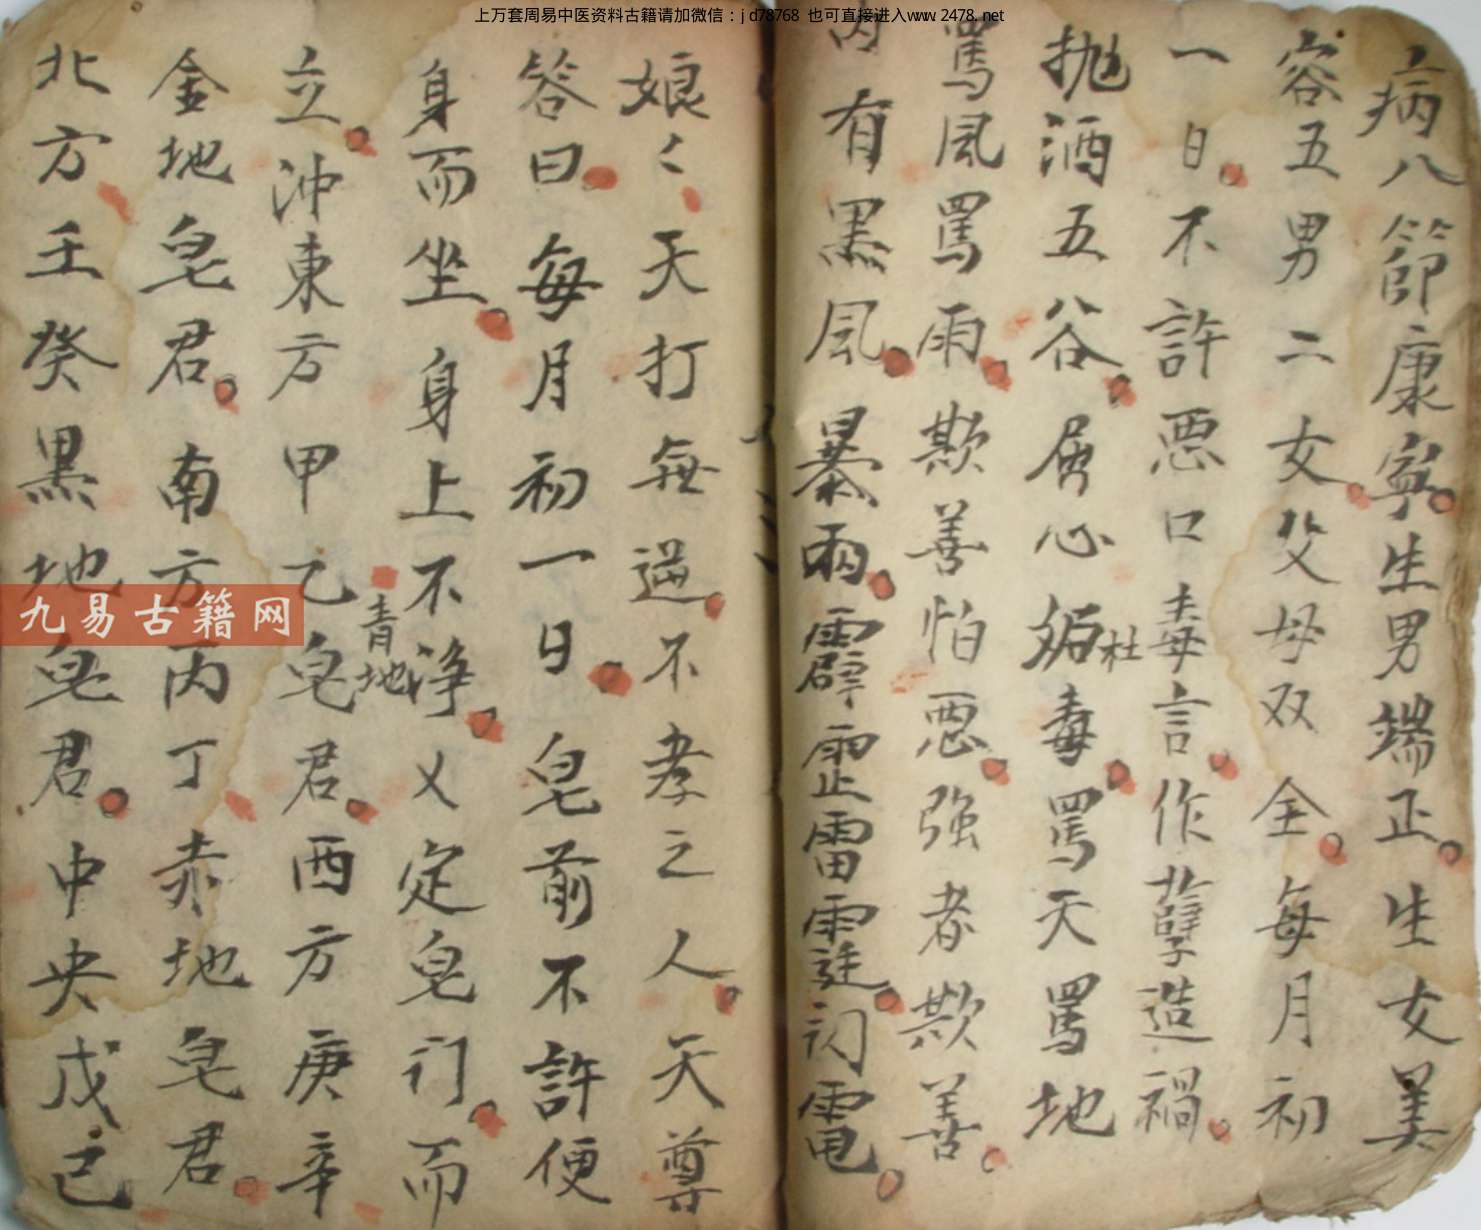 上万套周易中医资料古籍请加微信：jd78768 也可直接进入www.2478.net
病八節康寧生男端正生女美
容五男二女父母双全每月初
一日不許恶口毒言作孽造禍
抛洒五谷居心妬杜毒罵天罵地
罵風罵雨欺善怕惡強者欺善
内有黑風暴雨霹靂雷霆闪電
娘〻天打無過不孝之人天尊
答曰每月初一日皂前不許便
身而坐身上不净乂定皂门而
立冲東方甲乙青地皂君西方庚辛
金地皂君南方丙丁赤地皂君
北方壬癸黑地皂君中央戊己
九易古籍网